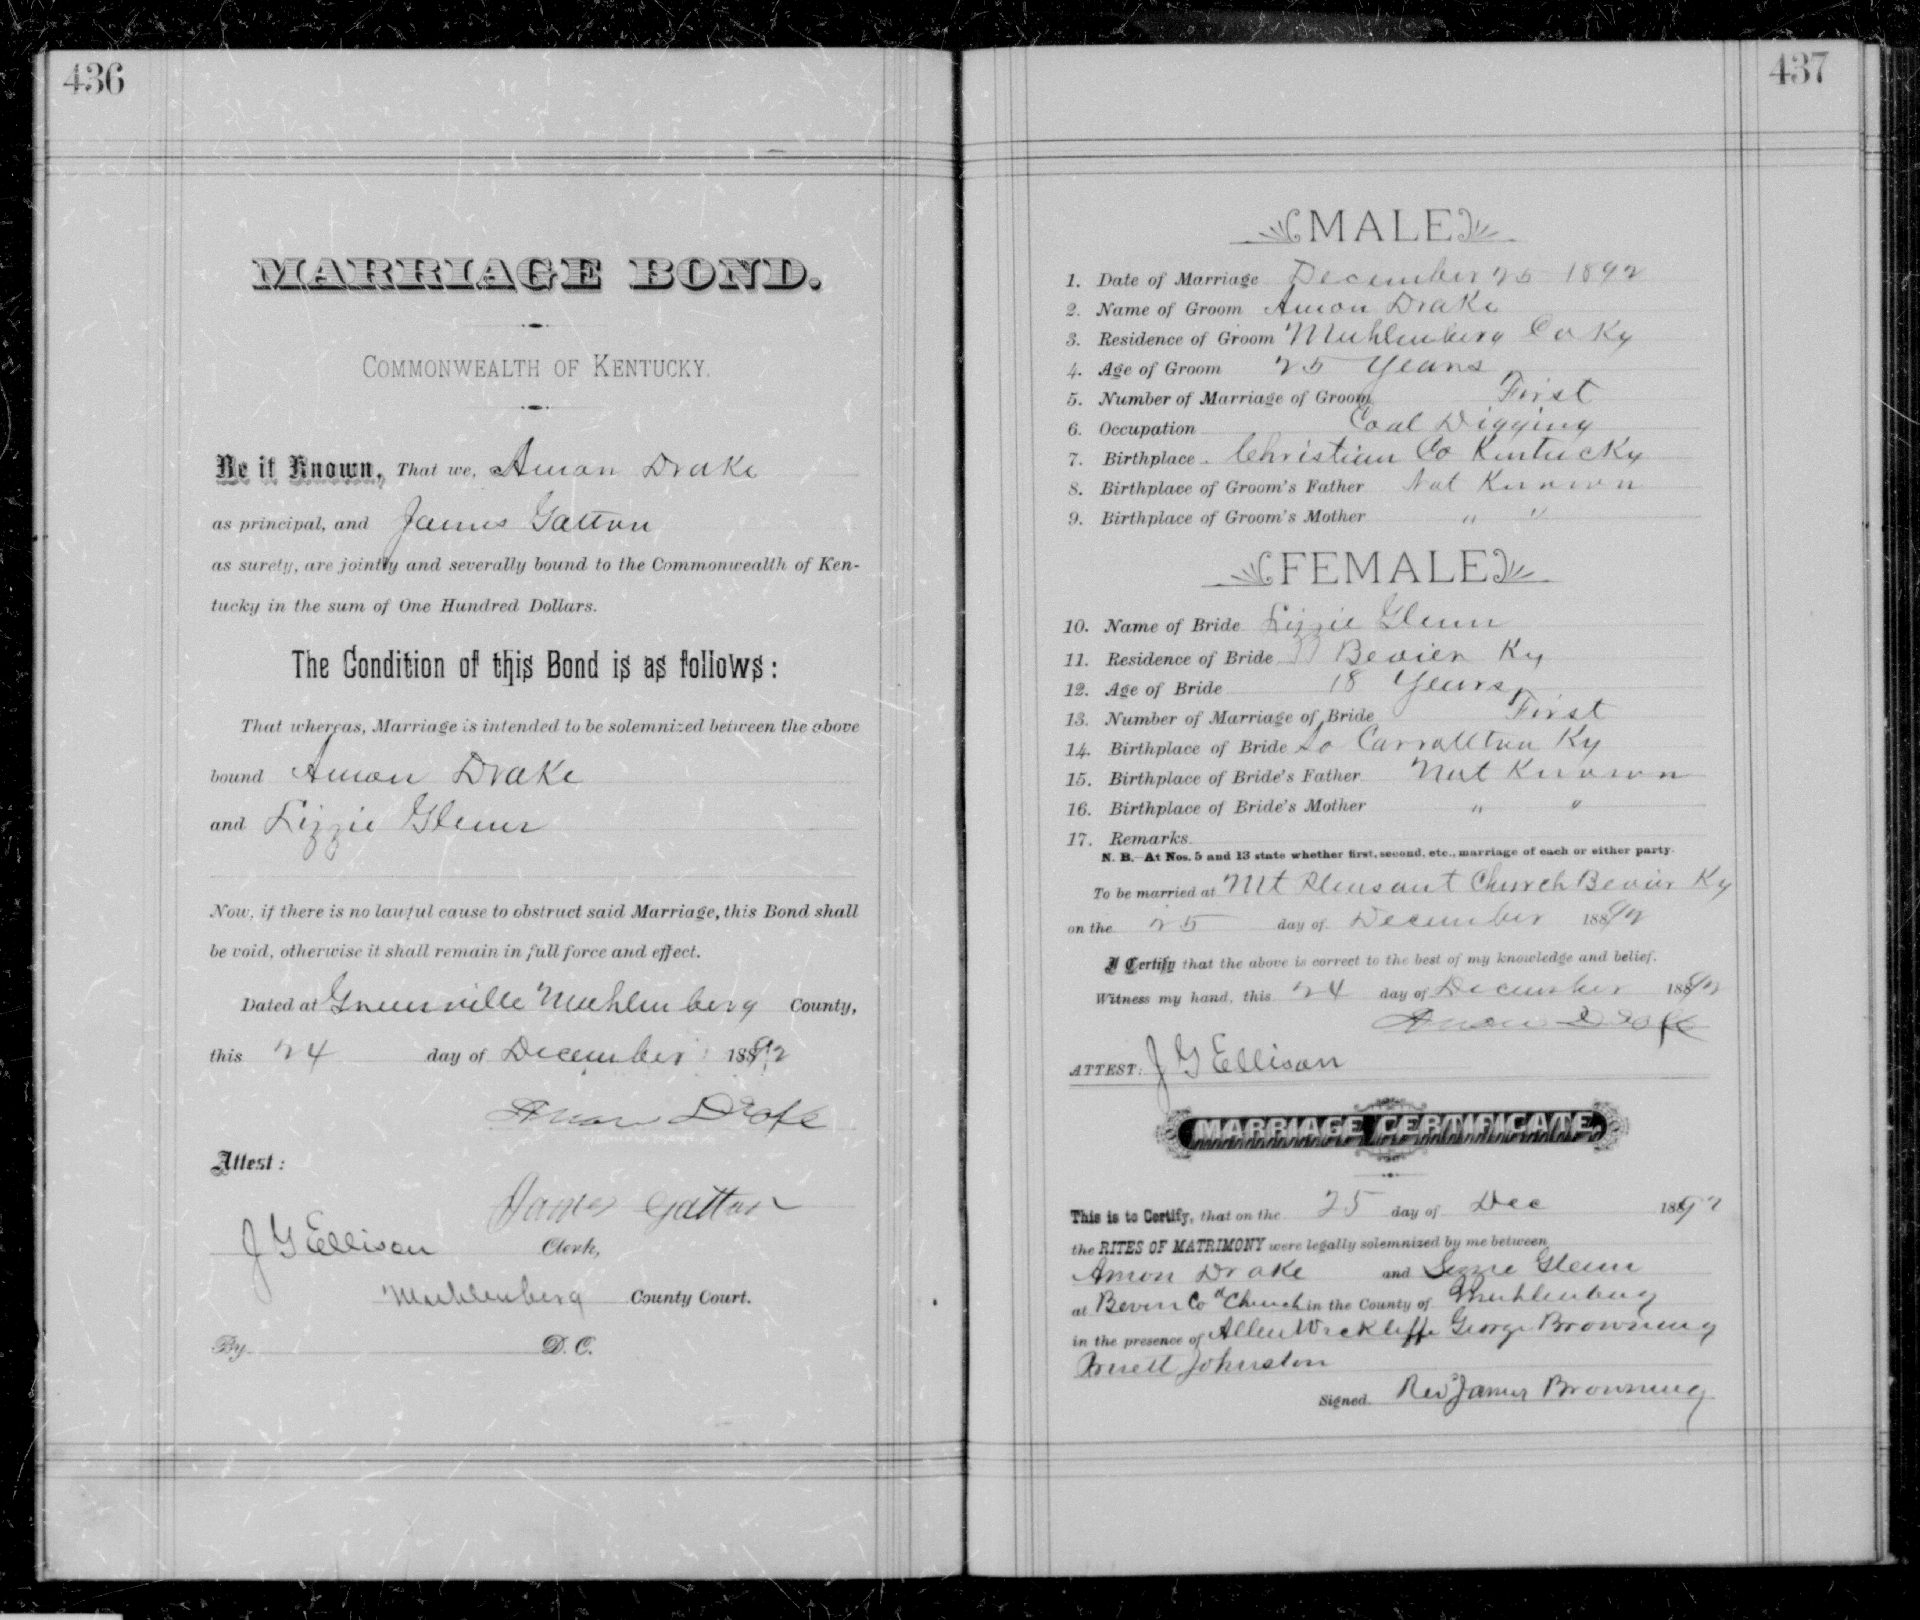 436
MARRIAGE BOND.
COMMONWEALTH OF KENTUCKY.
Be it Known, That we, Amon Drake
as principal, and James Gatton
as surety, are jointly and severally bound to the Commonwealth of Ken-
tucky in the sum of One Hundred Dollars.
The Condition of this Bond is as follows:
That whereas, Marriage is intended to be solemnized between the above
bound Amon Drake
and Lizzie Glenn
Now, if there is no lawful cause to obstruct said Marriage, this Bond shall
be void, otherwise it shall remain in full force and effect.
Dated at Greenville Muhlenberg County,
this 24 day of December 1892
Amon Drake
Attest:
James Gatton
J G Ellison Clerk,
Muhlenberg County Court.
By D. C.
437
MALE
1. Date of Marriage December 25 1892
2. Name of Groom Amon Drake
3. Residence of Groom Muhlenberg Co Ky
4. Age of Groom 25 Years
5. Number of Marriage of Groom First
6. Occupation Coal Digging
7. Birthplace Christian Co Kentucky
8. Birthplace of Groom's Father Not Known
9. Birthplace of Groom's Mother " "
FEMALE
10. Name of Bride Lizzie Glenn
11. Residence of Bride Bevier Ky
12. Age of Bride 18 Years
13. Number of Marriage of Bride First
14. Birthplace of Bride Carrollton Ky
15. Birthplace of Bride's Father Not Known
16. Birthplace of Bride's Mother " "
17. Remarks
N. B. At Nos. 5 and 13 state whether first, second, etc., marriage of each or either party.
To be married at Mt Pleasant Church Bevier Ky
on the 25 day of December 1892
I Certify that the above is correct to the best of my knowledge and belief.
Witness my hand, this 24 day of December 1892
Amon Drake
ATTEST: J G Ellison
MARRIAGE CERTIFICATE.
This is to Certify, that on the 25 day of Dec 1892
the RITES OF MATRIMONY were legally solemnized by me between
Amon Drake and Lizzie Glenn
at Bevier Co Church in the County of Muhlenberg
in the presence of Allen Wickliffe George Browning
Johnston
Signed. Rev James Browning